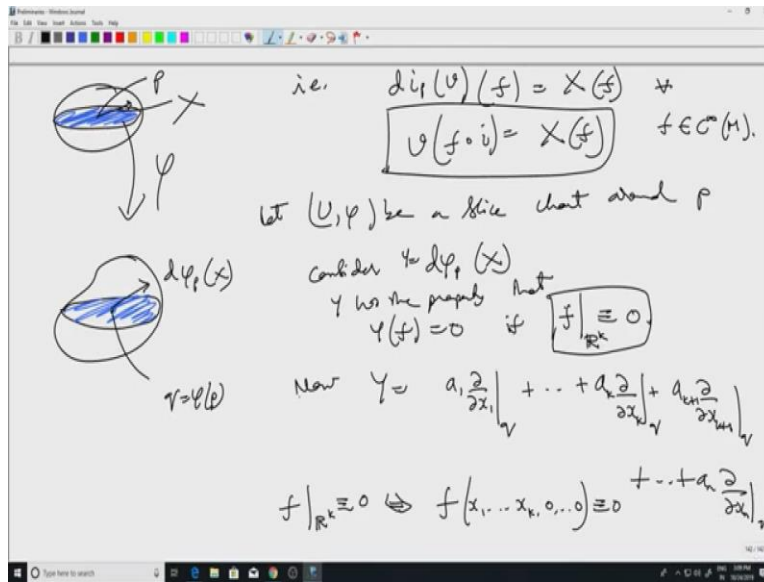 Preliminaries - Windows Journal
File Edit View Insert Actions Tools Help
p
X
φ
i.e. di_p(v)(f) = X(f) ∀
v(f∘i) = X(f) f ∈ C^∞(M).
Let (U, φ) be a slice chart around p
dφ_p(X)
Consider Y = dφ_p(X)
Y has the property that
Y(f) = 0 if f|_{ℝ^k} ≡ 0
q = φ(p)
Now Y = a_1 ∂/∂x_1|_q + ·· + a_k ∂/∂x_k|_q + a_{k+1} ∂/∂x_{k+1}|_q
+ ··· + a_n ∂/∂x_n|_q
f|_{ℝ^k} ≡ 0 ⇔ f(x_1, ... x_k, 0, ..0) ≡ 0
142 / 142
Type here to search
3:09 PM